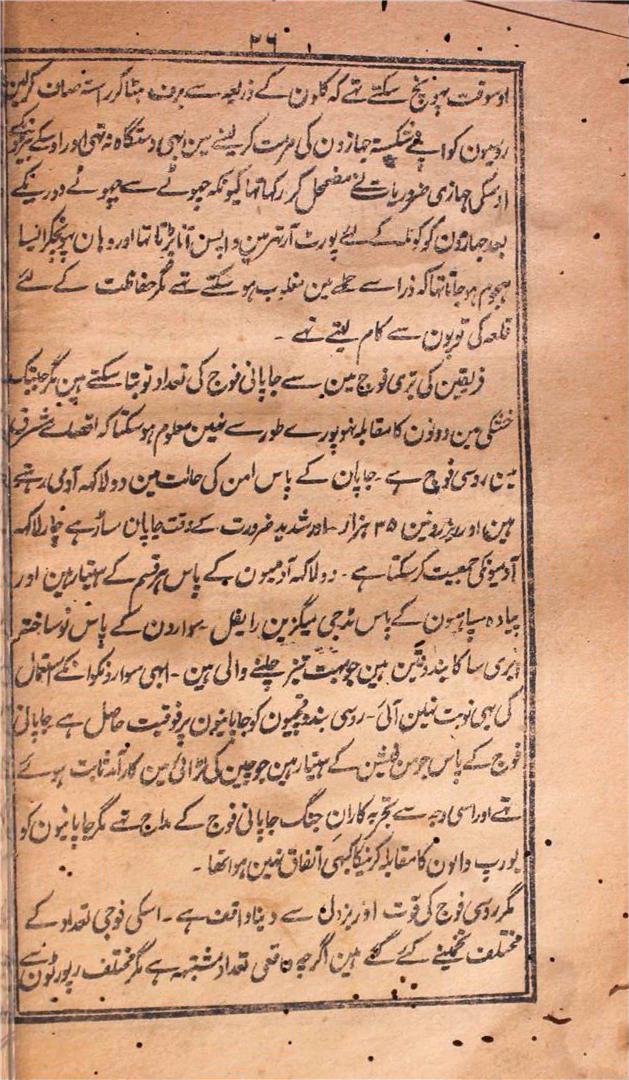 ۲۶
اوسوقت پہونچ سکتے تہے کہ کلون کے ذریعہ سے برف ہٹا کر راستہ صاف کرلین
روسیون کو اپنے شکستہ جہازون کی مرمت کرلینے مین ابہی دستگاہ نہ تہی اور اوسکے
اوسکی جہازی ضروریات نے مضمحل کر رکہا تہا کیونکہ چہوٹے سے چہوٹے دورنیکے
بعد جہازون کو کوئلہ کے لئے پورٹ آرتہر مین واپس آنا پڑتا تہا اور وہان پہونچکر ایسا
ہجوم ہو جاتا تہا کہ ذرا سے حملے مین مغلوب ہو سکتے تہے مگر حفاظت کے لئے
قلعہ کی توپون سے کام لیتے تہے ۔
فریقین کی بری فوج مین سے جاپانی فوج کی تعداد تو بتا سکتے ہین مگر جبتک
خشکی مین دونون کا مقابلہ نہو پورے طور سے نہین معلوم ہو سکتا کہ اقصائے شرق
مین روسی فوج ہے ۔ جاپان کے پاس امن کی حالت مین دو لاکہہ آدمی رہتے
ہین اور ریزرو مین ۳۵ ہزار ۔ اور شدید ضرورت کے وقت جاپان ساڑہے چار لاکہہ
آدمیونکی جمعیت کر سکتا ہے ۔ دو لاکہہ آدمیون کے پاس ہر قسم کے ہتیار ہین اور
پیادہ سپاہیون کے پاس مڈجی میگزین رایفل ۔ سوارون کے پاس نوساختہ
ایری ساکا بندوقین ہین جو بہت تیز چلنے والی ہین ۔ ابہی سوارونکو انکے استعمال
کی بہی نوبت نہین آئی ۔ روسی بندوقچیون کو جاپانیون پر فوقیت حاصل ہے جاپانی
فوج کے پاس جرمن فیشن کے ہتیار ہین جو چین کی لڑائی مین کارآمد ثابت ہوئے
تہے اور اسی وجہ سے تجربہ کاران جنگ جاپانی فوج کے مداح تہے مگر جاپانیون کو
یورپ والون کا مقابلہ کرنیکا کبہی اتفاق نہین ہوا تہا ۔
مگر روسی فوج کی قوت اور بزدلی سے دنیا واقف ہے ۔ اسکی فوجی تعداد کے
مختلف تخمینے کئے گئے ہین اگرچہ واقعی تعداد مشتبہہ ہے مگر مختلف رپورٹون سے